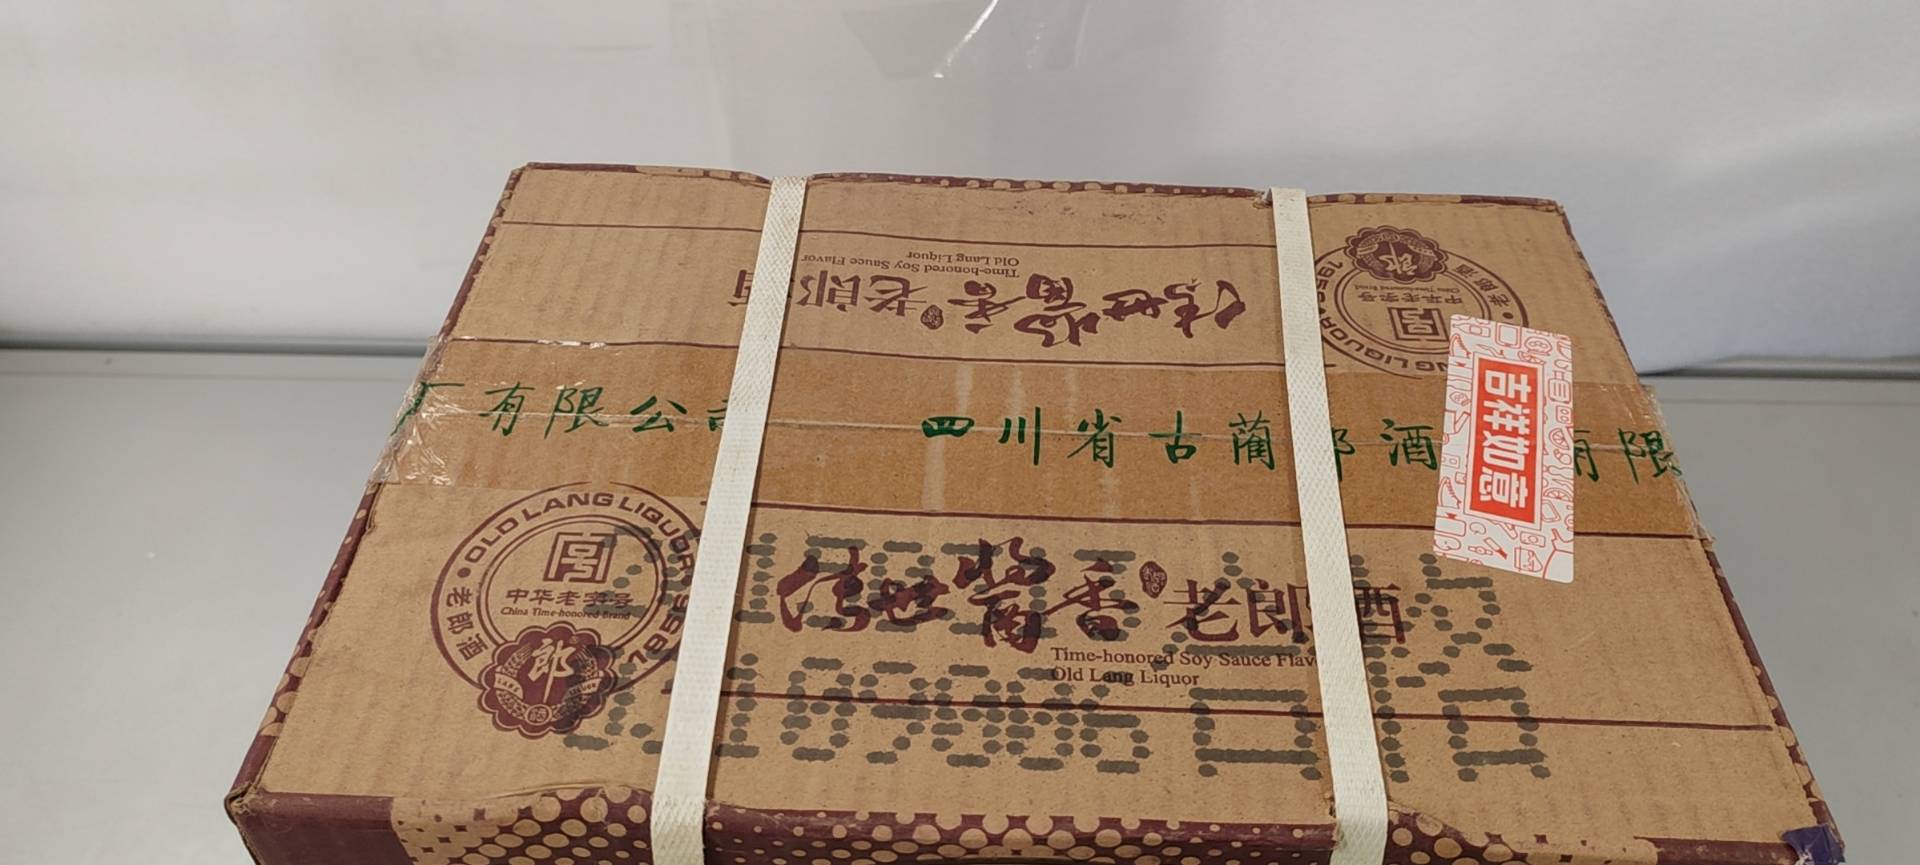 Time-honored Soy Sauce Flavor
Old Lang Liquor
传世酱香老郎酒
中华老字号
老郎酒
厂有限公司
四川省古蔺郎酒
有限
吉祥如意
OLD LANG LIQUOR 1956
中华老字号
China Time-honored Brand
老郎酒
郎
传世酱香老郎酒
Time-honored Soy Sauce Flavo
Old Lang Liquor